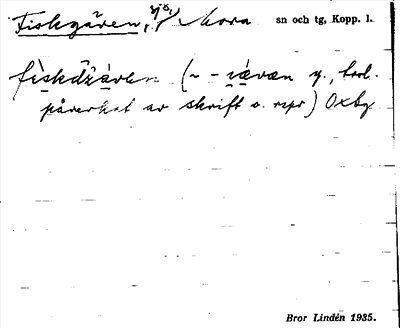 Fiskgären, sjö, Mora sn och tg, Kopp. l.
fìskdžä̀ren (~ -iävæn y., trol.
påverkat av skrift o. rspr) Oxbg
Bror Lindén 1935.